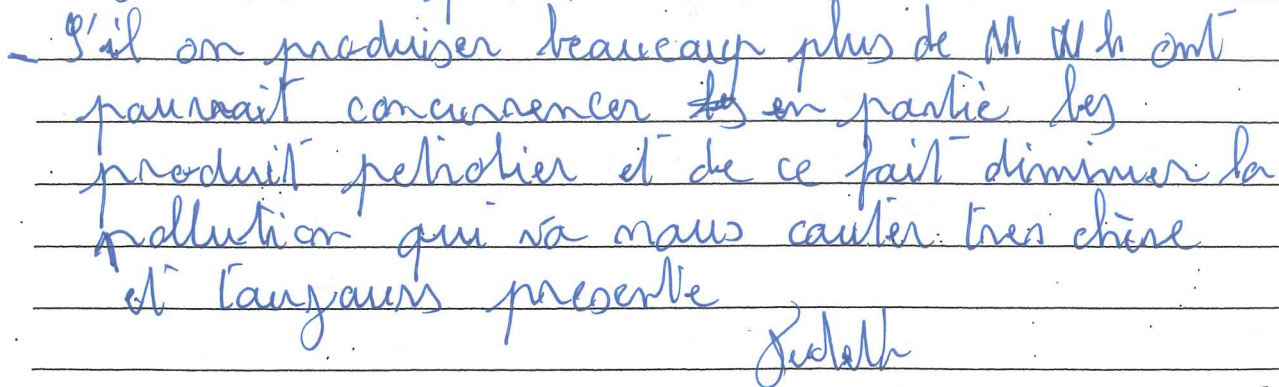 - S'il on produiser beaucoup plus de MWh ont
pourrait concurrencer en partie les
produit petrolier et de ce fait diminuer la
pollution qui va nous couter tres chère
et toujours presente